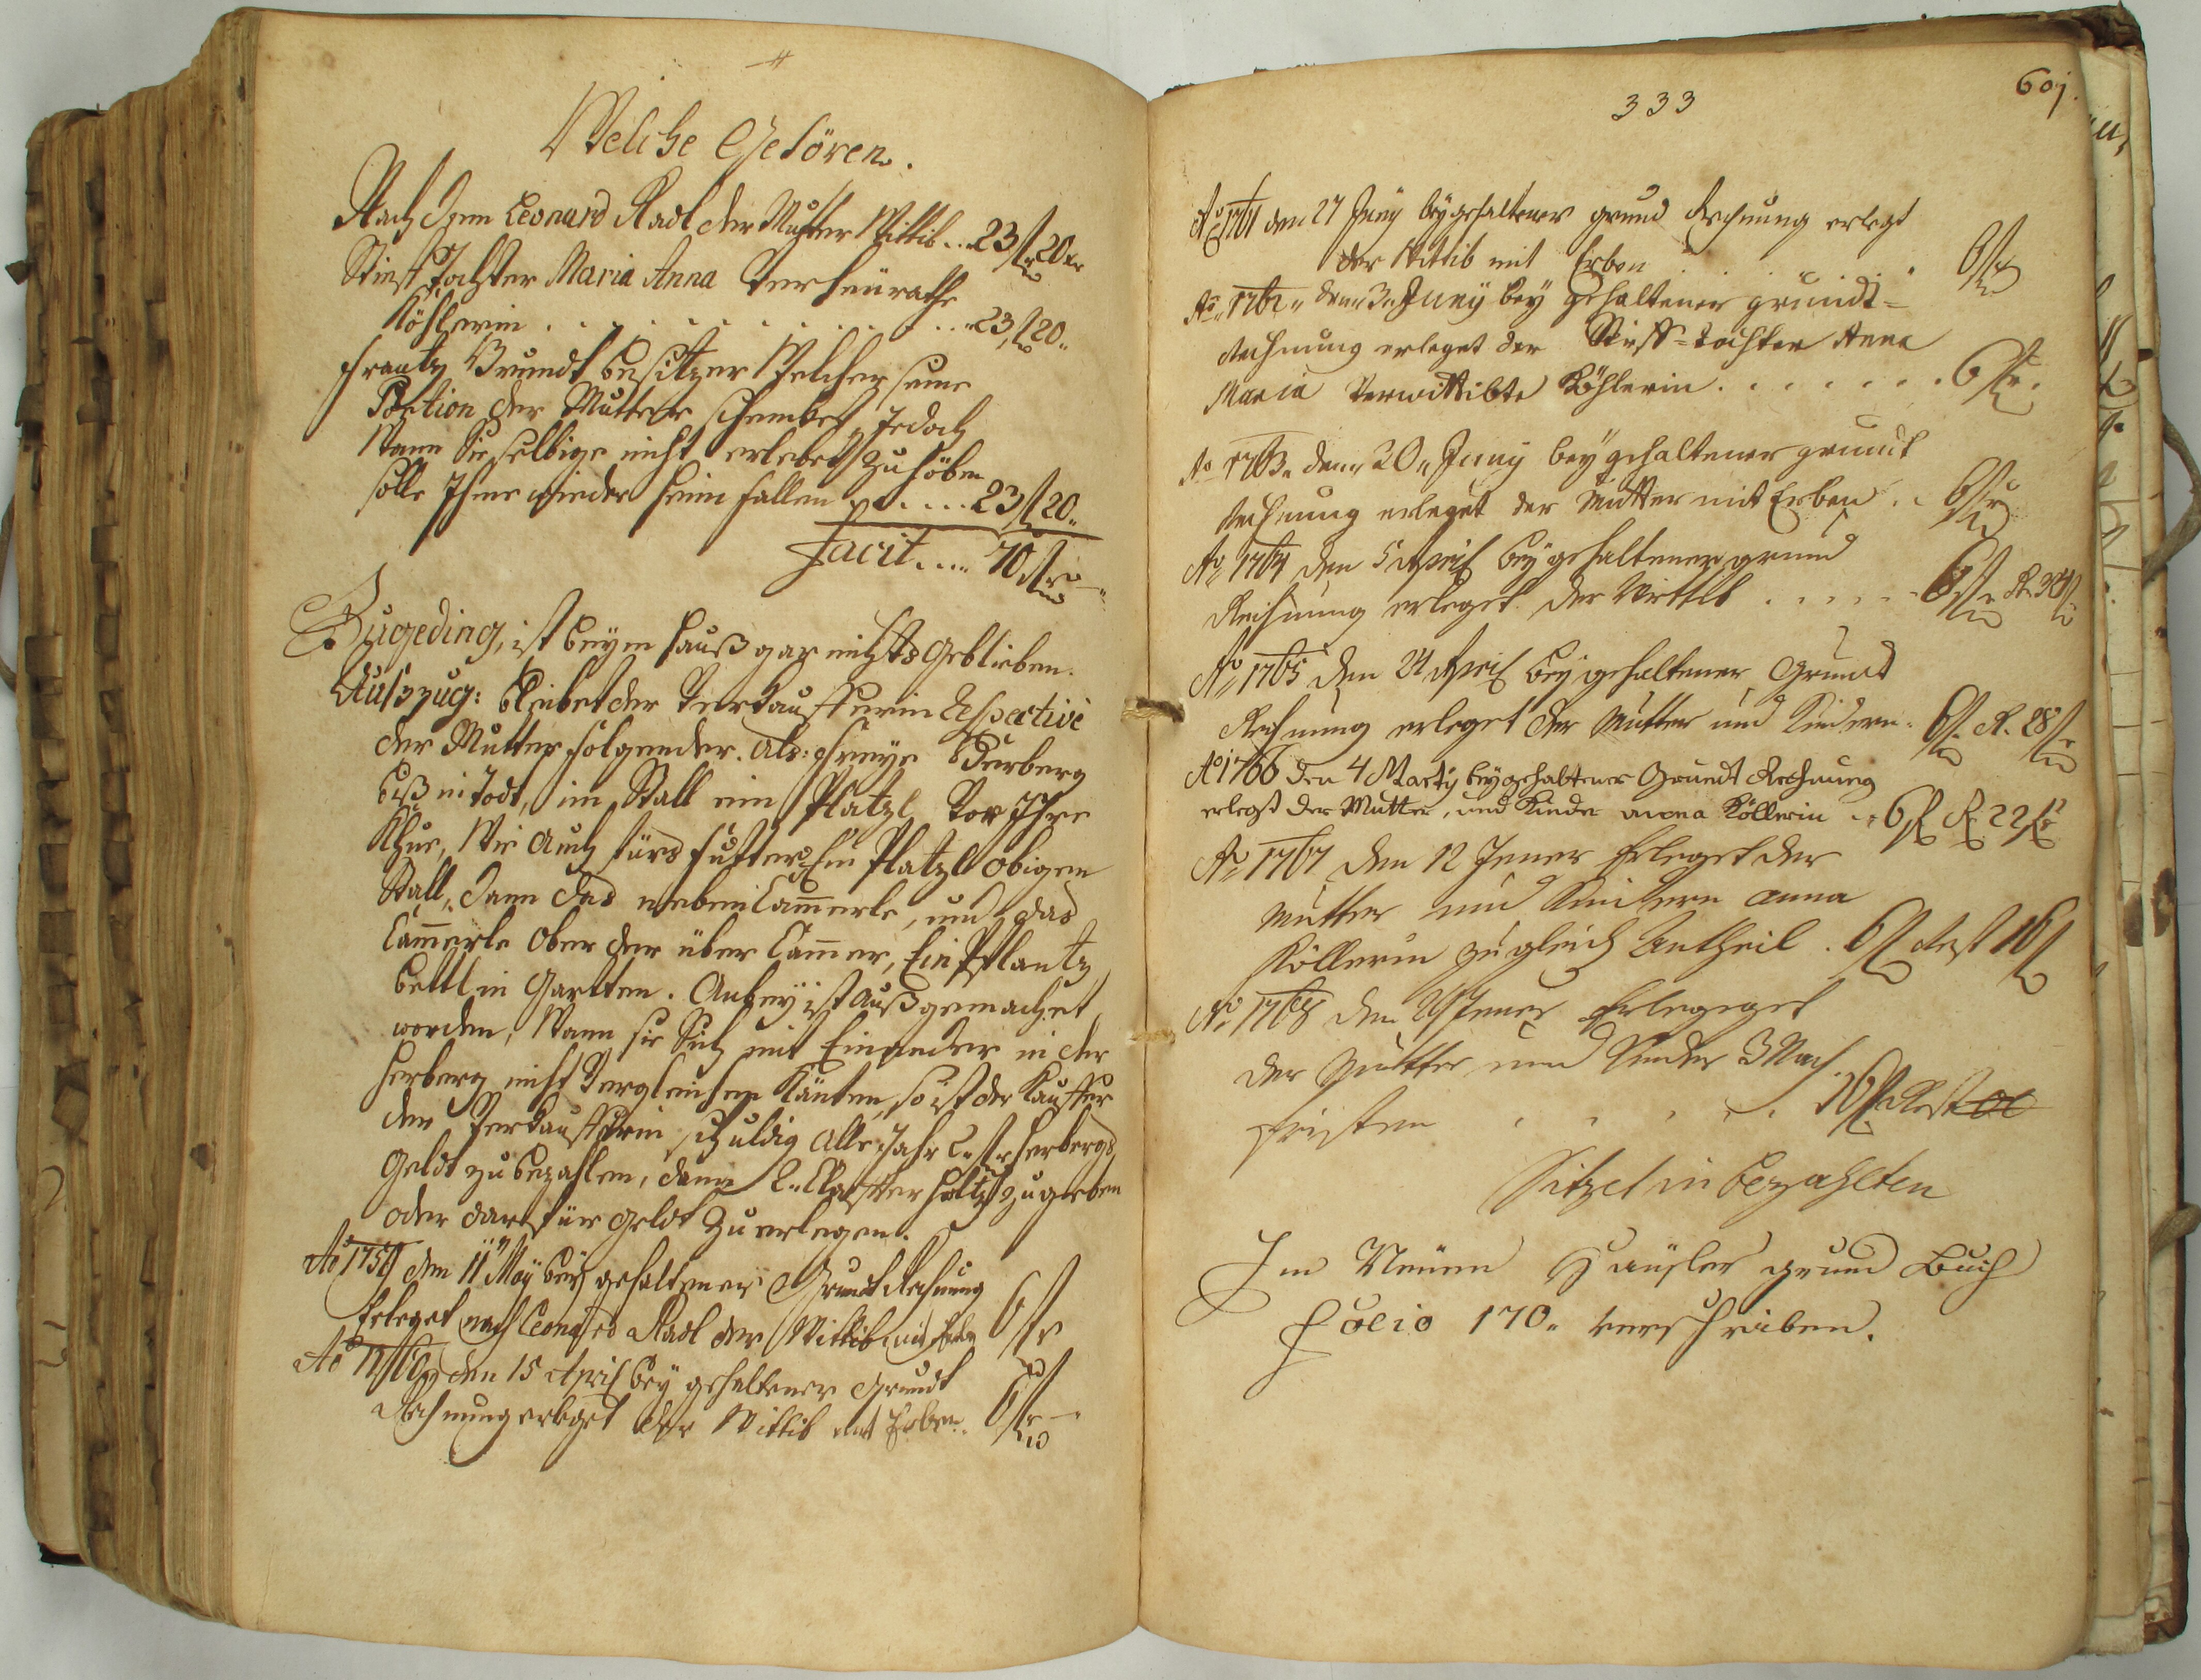 Welche Gehören.
Nach dem Leonard Radl der Mutter Wittib .. 23 f 20 xr
Stieff Tochter Maria Anna verheürathe
Köhlerin . . . . . . . . . . 23 f 20 „
Frantz Grundt besitzer Welcher seine
Portion der Mutter schencket, Jedoch
Wann Sie selbige nicht erlebet zu höben
solle Ihme wieder heim fallen . . . . 23 f 20 „
Facit .... 70 f
Zugeding, ist beym hauß gar nichts geblieben.
Außzug: bleibet der Verkaufferin Respective
der Mutter folgender. Als: freye Herberg
biß in Todt, im Stall ein Platzl vor Ihre
Khue, Wie auch fürs futter Ein Platzl obigen
Stall, dann das neben Cammerle, und das
Cammerle ober der über Cammer, Ein Pflantz
bettl in Gartten. Anbey ist außgemachet
worden, Wann sie Sich mit Einander in der
Herberg nicht vergleichen känten, so ist der Kauffer
der Verkaufferin schuldig alle Jahr 2 f herbergs
Geldt zu bezahlen, dann 2 Claffter Holtz zu geben
oder darfür geldt zu erlegen.
Ao 1759 den 11 May bey gehaltener Grundt Rechnung
Erleget nach Leonard Radl der Wittib mit Erben 6 f
Ao 1760 den 15 April bey gehaltener Grundt
Rechnung erleget der Wittib mit Erben . 6 f
333
601.
Ao 1761 den 27 Juny bey gehaltener grund Rechnung erlegt
der Wittib mit Erben . . . . . 6 f
Ao 1762 „ den 3 Juny bey gehaltener grundt=
Rechnung erleget der Stieff=Tochter Anna
Maria verwittibte Köhlerin . . . . . . 6 f
Ao 1763 „ den 20 „ Juny bey gehaltener grundt
Rechnung erleget der Mutter mit Erben . . 6 f
Ao 1764 den 5 April bey gehaltener grund
Rechnung erleget der Wittib . . . . . 6 f R. 34 f
Ao 1765 den 24 April bey gehaltener Grundt
Rechnung erleget der Mutter und Kindern . 6 f R. 28 f
Ao 1766 den 4 Marty bey gehaltener Grundt Rechnung
erlegt der Mutter, und Kinder anna Köllerin .. 6 f R 22 f
Ao 1767 den 12 Jener Erleget der
Mutter und Kindern anna
Köllerin zu gleich Antheil . 6 f Rest 16 f
Ao 1768 den Jener Erlegeget
der Mutter und Kinder 3 Nach
fristen . . . . . 16 f Rest
bezahlten
Im Neüen Haüsler grund Buch
Folio 170 „ verschrieben.